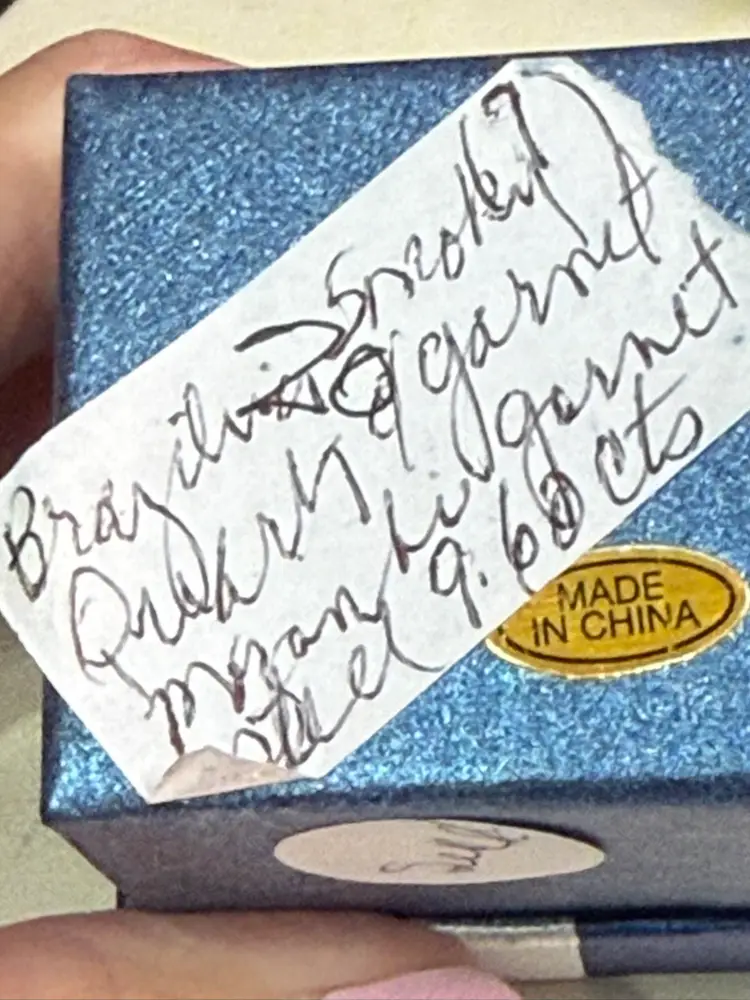 Brazilian Smoky
Quartz & garnet
Mozambi garnet
steel 9.60 cts
MADE
IN CHINA